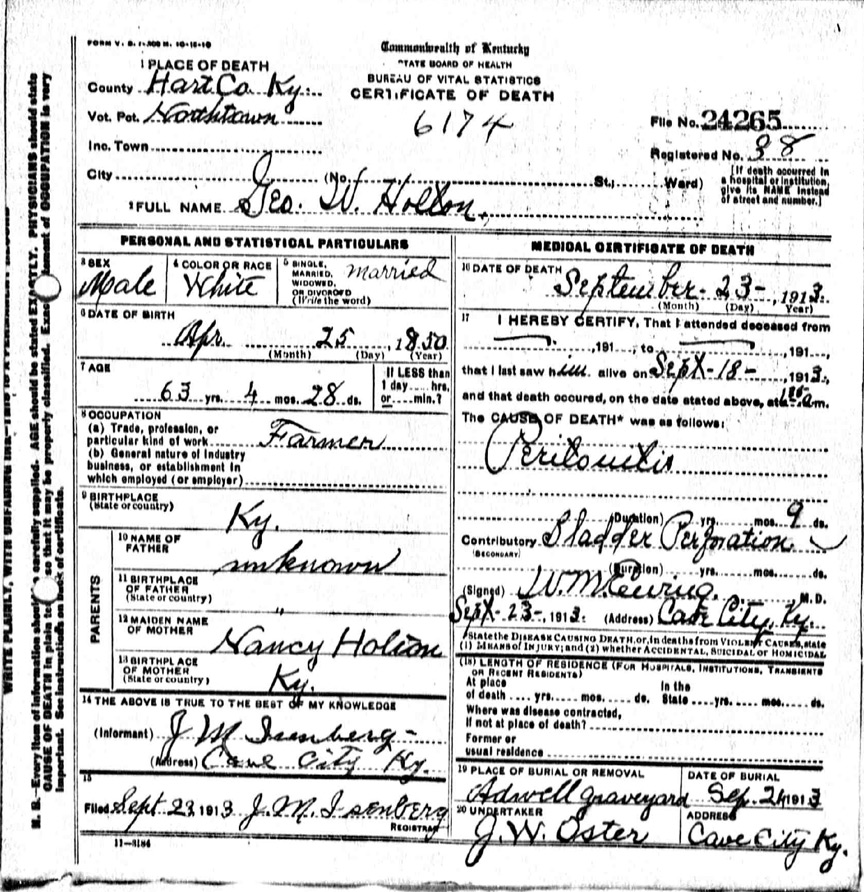 FORM V. S. 1-
Commonwealth of Kentucky
STATE BOARD OF HEALTH
BUREAU OF VITAL STATISTICS
CERTIFICATE OF DEATH
1 PLACE OF DEATH
County Hart Co Ky.
Vot. Pct. Northtown
Inc. Town
City (No. St.; Ward)
6174
File No. 24265
Registered No. 38
[If death occurred in a hospital or institution, give its NAME instead of street and number.]
2 FULL NAME Geo. W. Holton.
PERSONAL AND STATISTICAL PARTICULARS
3 SEX Male
4 COLOR OR RACE White
5 SINGLE, MARRIED, WIDOWED, OR DIVORCED (Write the word) married
6 DATE OF BIRTH
Apr. 25, 1850
(Month) (Day) (Year)
7 AGE
63 yrs. 4 mos. 28 ds.
If LESS than 1 day.... hrs. or.... min.?
8 OCCUPATION
(a) Trade, profession, or particular kind of work Farmer
(b) General nature of Industry business, or establishment in which employed (or employer)
9 BIRTHPLACE
(State or country)
Ky.
PARENTS
10 NAME OF FATHER unknown
11 BIRTHPLACE OF FATHER (State or country) "
12 MAIDEN NAME OF MOTHER Nancy Holton
13 BIRTHPLACE OF MOTHER (State or country) Ky.
14 THE ABOVE IS TRUE TO THE BEST OF MY KNOWLEDGE
(Informant) J M Isenberg-
(Address) Cave City Ky.
15
Filed Sept 23, 1913 J. M. Isenberg
REGISTRAR
11-3184
MEDICAL CERTIFICATE OF DEATH
16 DATE OF DEATH
September- 23-, 1913.
(Month) (Day) Year)
17 I HEREBY CERTIFY, That I attended deceased from
, 191 , to , 191 ,
that I last saw him alive on Sept-18-, 1913,
and that death occured, on the date stated above, at m.
The CAUSE OF DEATH* was as follows:
Peritonitis
(Duration) yrs. mos. 9 ds.
Contributory Bladder Perforation
(SECONDARY)
(Duration) yrs. mos. ds.
(Signed) W. M. Ewing. M. D.
Sept-23-, 1913. (Address) Cave City, Ky.
*State the DISEASE CAUSING DEATH, or, in deaths from VIOLENT CAUSES, state
(1) MEANS OF INJURY; and (2) whether ACCIDENTAL, SUICIDAL or HOMICIDAL
(18) LENGTH OF RESIDENCE (FOR HOSPITALS, INSTITUTIONS, TRANSIENTS
OR RECENT RESIDENTS)
At place of death .... yrs. mos. ds.
In the State .... yrs. mos. ds.
Where was disease contracted,
If not at place of death?
Former or
usual residence
19 PLACE OF BURIAL OR REMOVAL
Adwell graveyard
DATE OF BURIAL
Sep. 24 1913
20 UNDERTAKER
J. W. Oster
ADDRESS
Cave City Ky.
N. B.-Every item of information should be carefully supplied. AGE should be stated EXACTLY. PHYSICIANS should state
CAUSE OF DEATH in plain so that it may be properly classified. statement of OCCUPATION is very
important. See instructions on back of certificate.